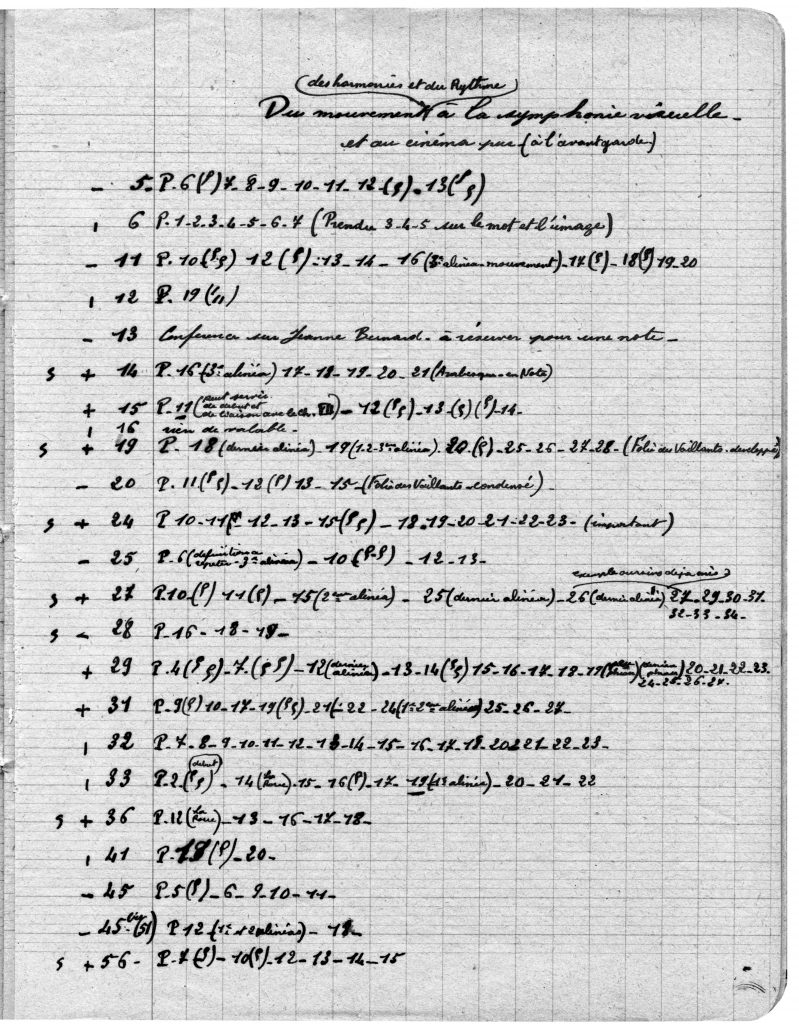 (des harmonies et du Rythme)
Du mouvement à la symphonie visuelle -
et au cinéma pur (à l'avantgarde)
- 5 - P. 6 (ρ) 7 - 8 - 9 - 10 - 11 - 12 - (ς) - 13 (ρς)
ı 6 P. 1 - 2 - 3 - 4 - 5 - 6 - 7 (Prendre 3 - 4 - 5 sur le mot et l'image)
- 11 P. 10 (ρς) 12 (ρ) - 13 - 14 - 16 (3e alinéa - mouvement) - 17 (ρ) - 18 (ρ) 19 - 20
ı 12 P. 19
- 13 Conférence sur Jeanne Bernard - à réserver pour une note -
s + 14 P. 16 (3e alinéa) 17 - 18 - 19 - 20 - 21 (Arabesque - en Note)
+ 15 P. 11 (peut servir de début et de liaison avec le Ch. VII) - 12 (ρς) - 13 - (ς) (ρ) - 14 -
ı 16 rien de valable -
s + 19 P. 18 (dernier alinéa) - 19 (1 - 2 - 3e alinéa) - 20 - (ς) - 25 - 26 - 27 - 28 - (Folie des Vaillants - développé)
- 20 P. 11 (ρς) - 12 (ρ) 13 - 15 - (Folie des Vaillants - condensé) -
s + 24 P 10 - 11 12 - 13 - 15 (ρς) - 18 - 19 - 20 - 21 - 22 - 23 - (important)
- 25 P. 6 (définition à - 3e alinéa) - 10 (ρ - ρ) - 12 - 13 -
s + 27 P. 10 - (ρ) 11 (ς) - 15 (2me alinéa) - 25 (dernier alinéa) - 26 (dernier alinéa) 27 - 29 - 30 - 31 -
32 - 33 - 34 -
s - 28 P. 16 - 18 - 19 -
+ 29 P. 4 (ρς) - 7 - (ςρ) - 12 (dernier alinéa) - 13 - 14 (ρς) 15 - 16 - 17 - 18 - 19 20 - 21 - 22 - 23 -
24 - 25 - 26 - 27 -
+ 31 P. 9 (ρ) 10 - 17 - 19 (ρς) - 21 - 22 - 24 (1e - 2me alinéa) 25 - 26 - 27 -
ı 32 P. 7 - 8 - 9 - 10 - 11 - 12 - 13 - 14 - 15 - 16 - 17 - 18 - 20 21 - 22 - 23 -
ı 33 P. 2 (ρς) (début) - 14 (La Roue) - 15 - 16 (ρ) - 17 - 19 (1e alinéa) - 20 - 21 - 22
s + 36 P. 12 (La Roue) - 13 - 16 - 17 - 18 -
ı 41 P. 18 (ρ) - 20 -
- 45 P. 5 (ρ) - 6 - 9 - 10 - 11 -
- 45 (51) P. 12 (1e et 2e alinéas) -
s + 56 - P. 7 (ρ) - 10 (ρ) - 12 - 13 - 14 - 15